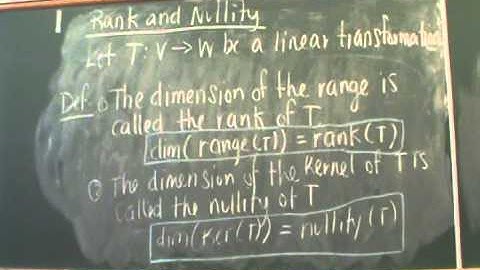 Rank and Nullity
Let T: V → W be a linear transformation
Def. ① The dimension of the range is
called the rank of T
dim(range(T)) = rank(T)
② The dimension of the kernel of T is
called the nullity of T
dim(Ker(T)) = nullity(T)